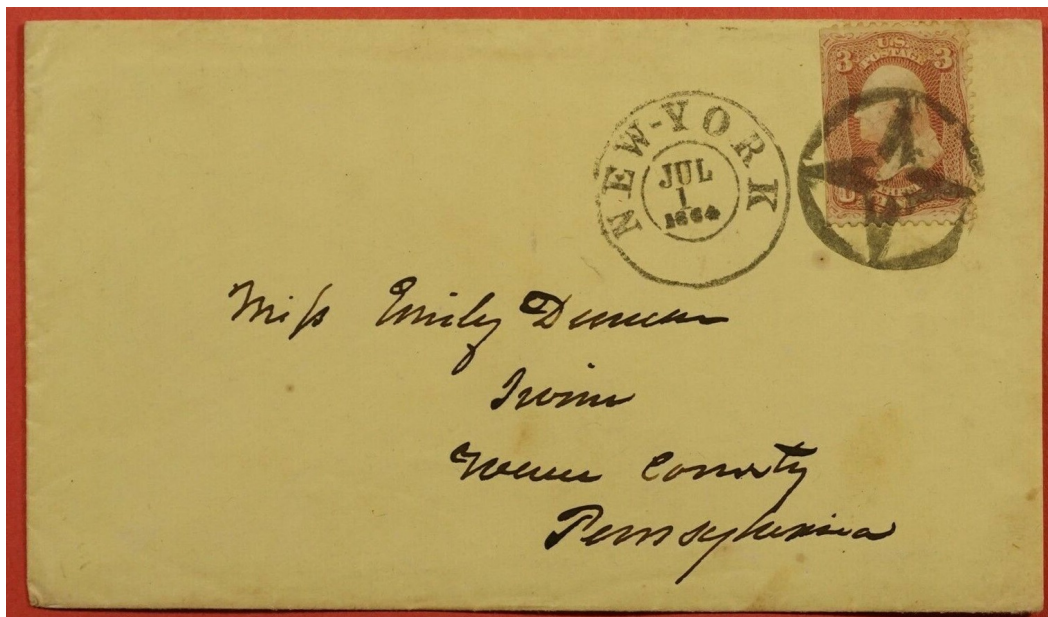 3 U.S. 3
POSTAGE
NEW-YORK
JUL
1
1864
Miss Emily Duncan
Irvine
Warren County
Pennsylvania